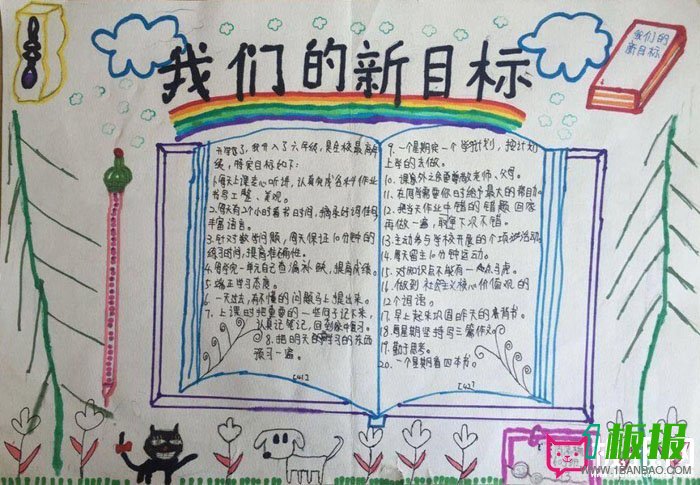 我们的新目标
我们的
新目标
开学了,我升入了六年级,是全校最高年
级,特定目标如下:
1.每天上课专心听讲,认真完成各科作业
书写工整、美观。
2.每天有2个小时看书时间,摘录好词佳句
丰富语言。
3.针对数学问题,每天保证10分钟的
练习时间,提高准确性。
4.每学完一单元自己查漏补缺,提高成绩。
5.端正学习态度。
6.一天过去,有不懂的问题马上提出来。
7.上课时把重要的一些句子记下来,
认真记笔记,回到家中复习。
8.把明天的要学习的东西
预习一遍。
[41]
9.一个星期定一个学习计划,按计划
上学的去做。
10.课里外之余要尊敬老师、父母。
11.在同学需要你时给予最大的帮助。
12.把每天作业中错的错题回家
再做一遍,下次不错。
13.主动参与学校开展的个项活动。
14.每天留主10分钟运动。
15.对知识点不能有一点马虎。
16.做到社会主义核心价值观的
12个词语。
17.早上起来巩固昨天的看背书。
18.每星期坚持写三篇作文。
19.勤于思考。
20.一个星期看四本书。
[42]
板报
WWW.1BANBAO.COM